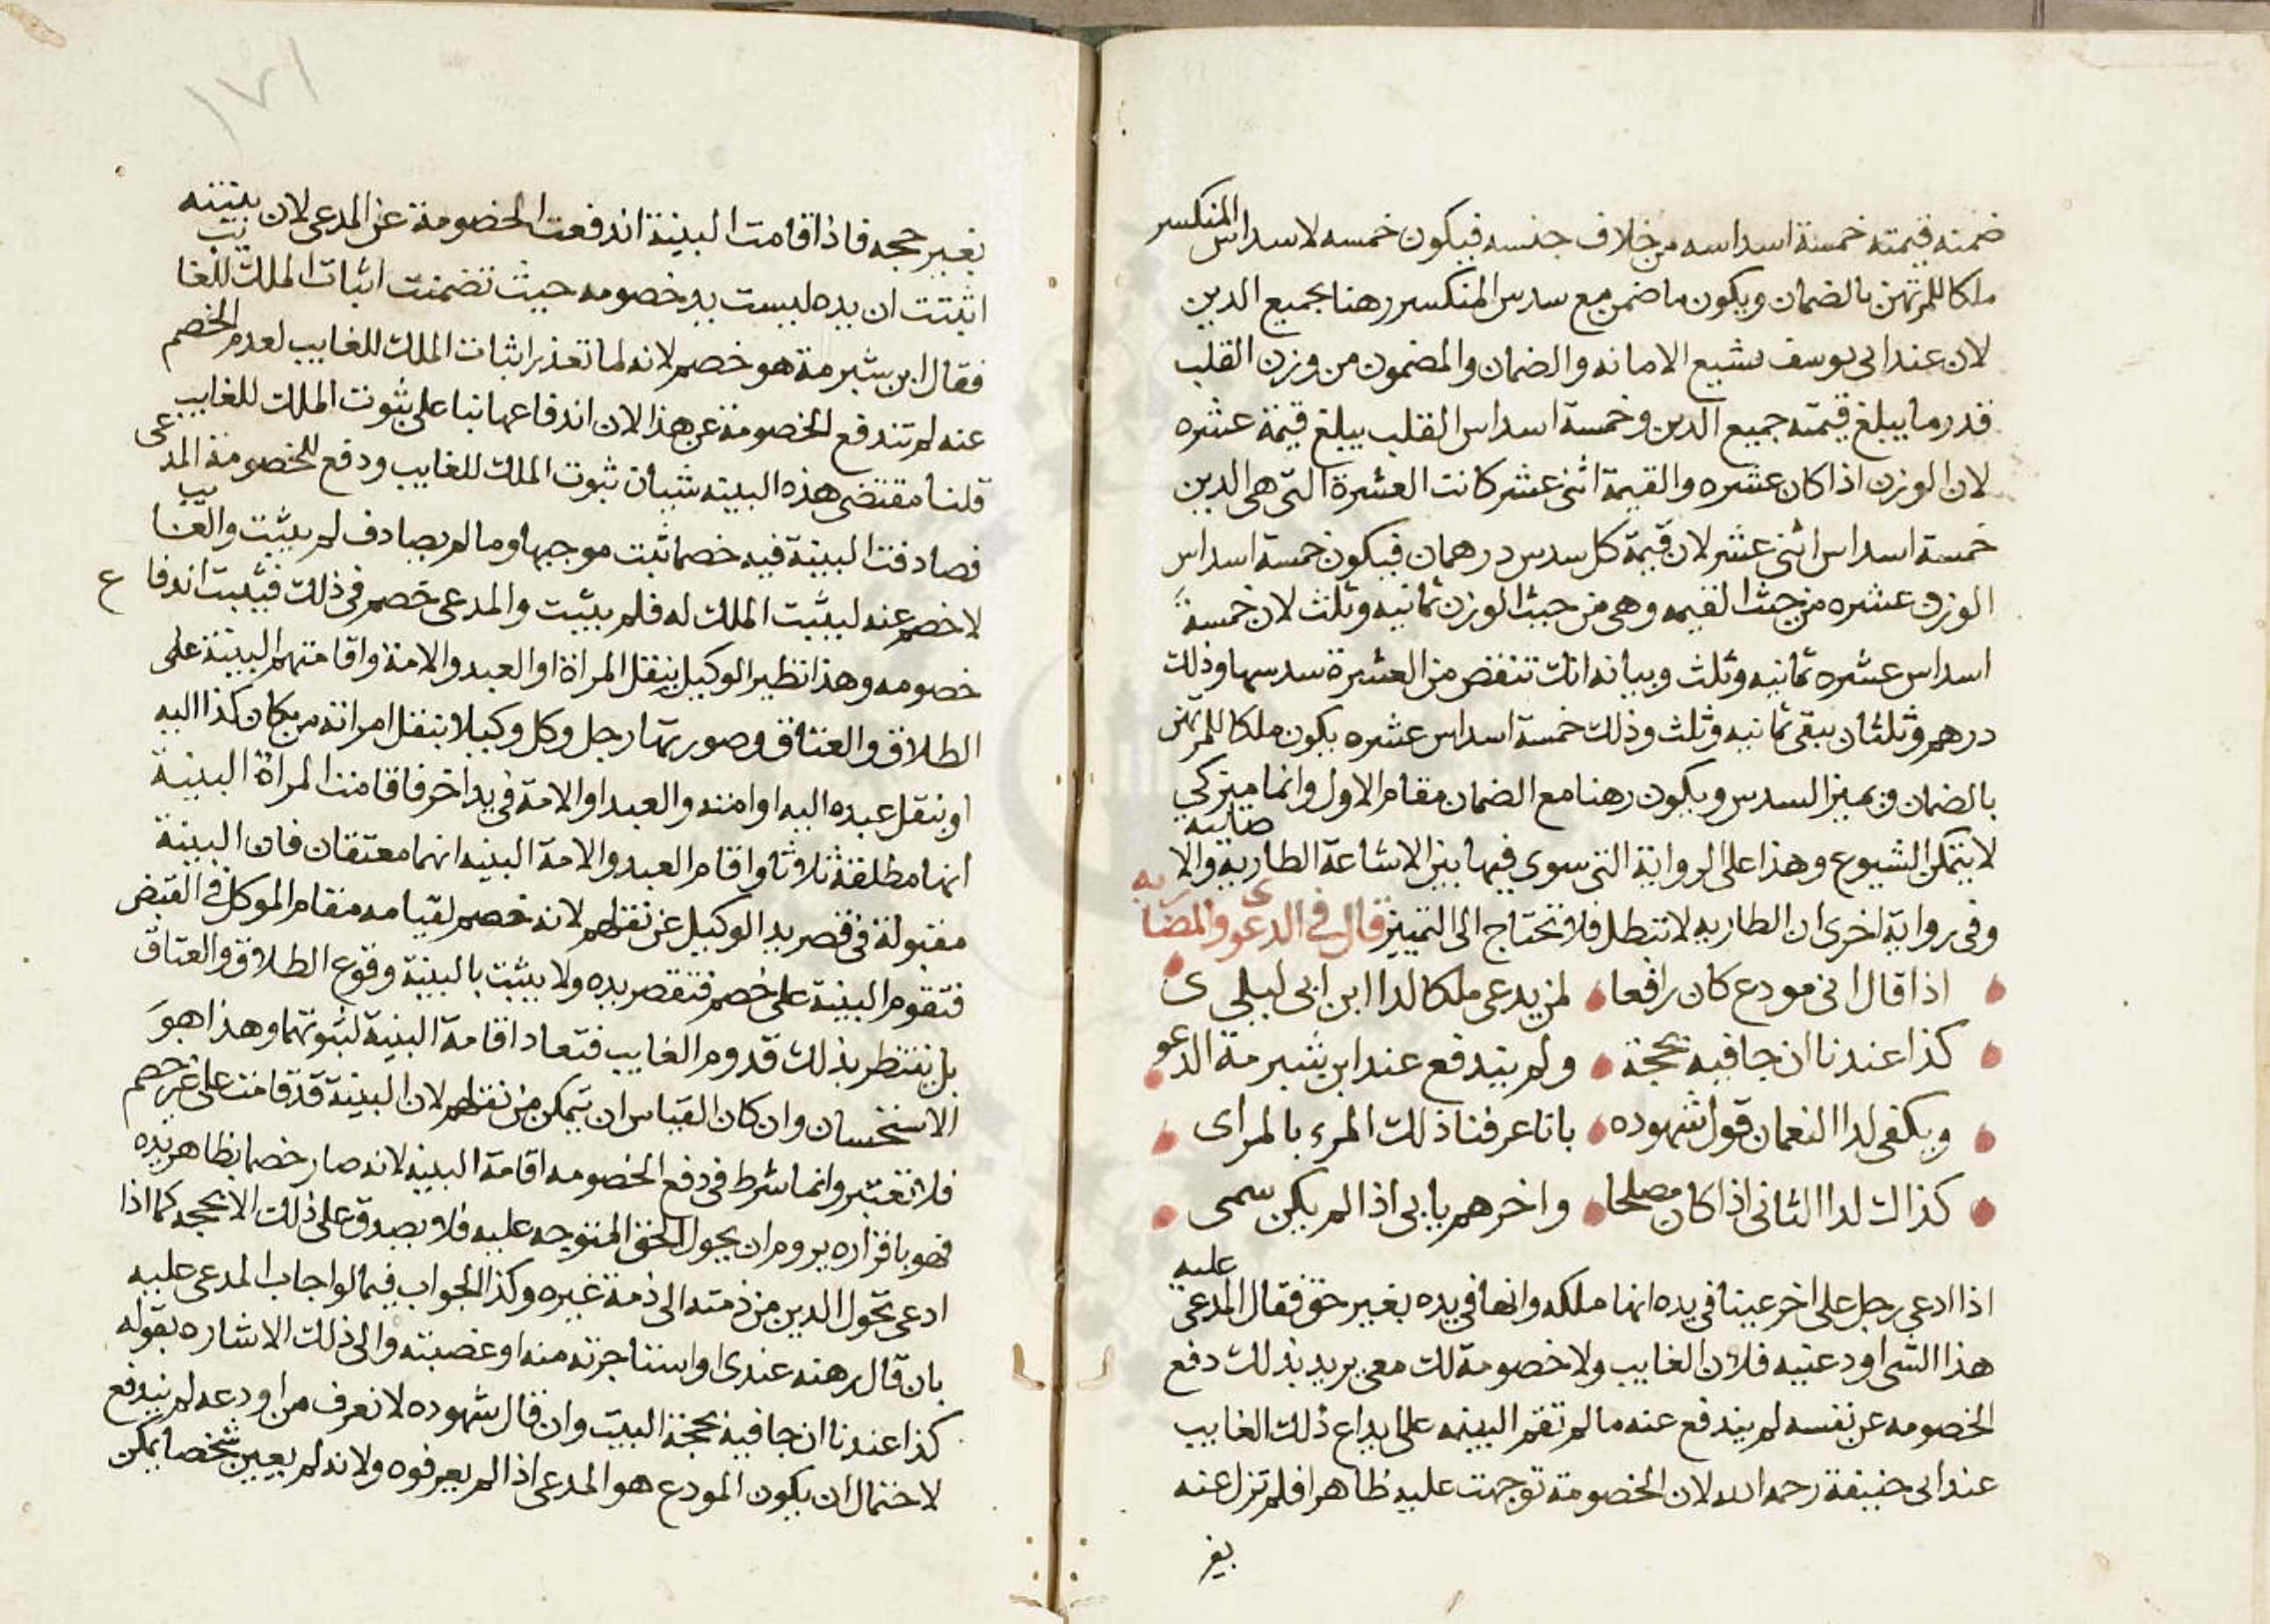 ضمنه قيمته خمسة اسداسه من خلاف جنسه فيكون خمسه لاسداس المنكسر
ملكا للمرتهن بالضمان ويكون ما ضمن مع سدس المنكسر رهنا بجميع الدين
لان عند ابى يوسف يشيع الامانه والضمان والمضمون من وزن القلب
قدر ما يبلغ قيمته جميع الدين وخمسة اسداس القلب يبلغ قيمة عشره
لان الوزن اذا كان عشره والقيمة اثنى عشر كانت العشرة التى هى الدين
خمسة اسداس اثنى عشر لان قيمة كل سدس درهمان فيكون خمسة اسداس
الوزن عشره من حيث القيمه وهى من حيث الوزن ثمانيه وثلث لان خمسة
اسداس عشره ثمانيه وثلث وبيانه انك تنقص من العشرة سدسها وذلك
درهم وثلثان يبقى ثمانيه وثلث وذلك خمسة اسداس عشره يكون ملكا للمرتهن
بالضمان ويميز السدس ويكون رهنا مع الضمان مقام الاول وانما ميز كي
لا يتمكن الشيوع وهذا على الرواية التى سوى فيها بين الاشاعة الطارية والاصليه
وفى رواية اخرى ان الطاريه لا تبطل فلا تحتاج الى التمييز قال فى الدعوى والمضاربه
اذا قال انى مودع كان رافعا لمن يدعى ملكا لدا ابن ابى ليلى
كذا عندنا ان جا فيه بحجة ولم يندفع عند ابن شبرمة الدعو
ويكفى لدا النعمان قول شهوده بانا عرفنا ذلك المرء بالمراى
كذاك لدا الثانى اذا كان مصلحا واخرهم يابى اذا لم يكن سمى
اذا ادعى رجل على اخر عينا فى يده انها ملكه وانها فى يده بغير حق فقال المدعى عليه
هذا الشى اودعنيه فلان الغايب ولا خصومة لك معى يريد بذلك دفع
الخصومه عن نفسه لم يندفع عنه ما لم تقم البينه على ايداع ذلك الغايب
عند ابى حنيفة رحمه الله لان الخصومة توجهت عليه ظاهرا فلم تزل عنه
بغير
١٧١
بغير حجه فاذا اقامت البينة اندفعت الخصومة عن المدعى لان ببينته
اثبتت ان يده ليست يد خصومه حيث تضمنت اثبات الملك للغايب
فقال ابن شبرمة هو خصم لانه لما تعذر اثبات الملك للغايب لعدم الخصم
عنه لم تندفع الخصومة عن هذا لان اندفاعها بنا على ثبوت الملك للغايب
قلنا مقتضى هذه البينه شيان ثبوت الملك للغايب ودفع للخصومة المدعى
فصادفت البينة فيه خصما ثبت موجبها وما لم يصادف لم يثبت والغايب
لا خصم عنه ليثبت الملك له فلم يثبت والمدعى خصم فى ذلك فيثبت اندفاع
خصومه وهذا نظير الوكيل ينقل المراة او العبد والامة واقامتهم البينة على
الطلاق والعتاق وصورتها رجل وكل وكيلا بنقل امراته من مكان كذا اليه
او بنقل عبده اليه او امته والعبد او الامة فى يد اخر فاقامت المراة البينة
انها مطلقة ثلاثا واقام العبد والامة البينه انهما معتقان فان البينة
مقبولة فى قصر يد الوكيل عن نقلهم لانه خصم لقيامه مقام الموكل فى القبض
فتقوم البينة على خصم فتقصر يده ولا يثبت بالبينة وقوع الطلاق والعتاق
بل ينتظر بذلك قدوم الغايب فتعاد اقامة البينة لثبوتهما وهذا هو
الاستحسان وان كان القياس ان يتمكن من نقلهم لان البينة قد قامت على غير خصم
فلا تعتبر وانما شرط فى دفع الخصومه اقامة البينه لانه صار خصما بظاهر يده
فهو باقراره يروم ان يحول الحق المتوجه عليه فلا يصدق على ذلك الا بحجه كما اذا
ادعى تحول الدين من ذمته الى ذمة غيره وكذا الجواب فيما لو اجاب المدعى عليه
بان قال رهنه عندى او استاجرته منه او غصبته والى ذلك الاشاره بقوله
كذا عندنا ان جا فيه بحجة البيت وان قال شهوده لا نعرف من اودعه لم يندفع
لاحتمال ان يكون المودع هو المدعى اذا لم يعرفوه ولانه لم يعين شخصا يمكن